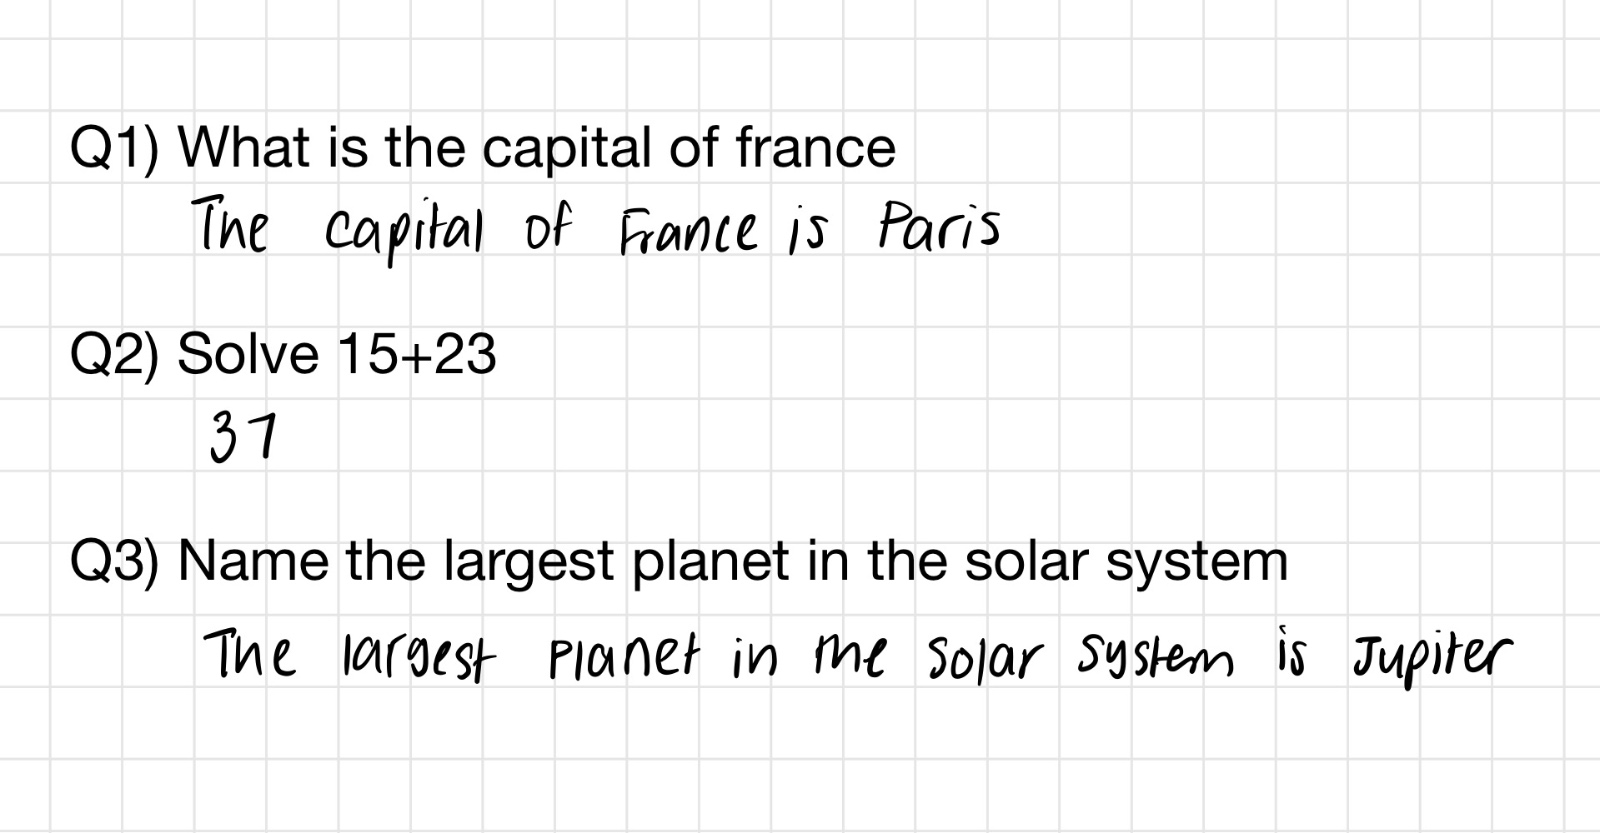 Q1) What is the capital of france
The capital of France is Paris
Q2) Solve 15+23
37
Q3) Name the largest planet in the solar system
The largest planet in the solar system is Jupiter